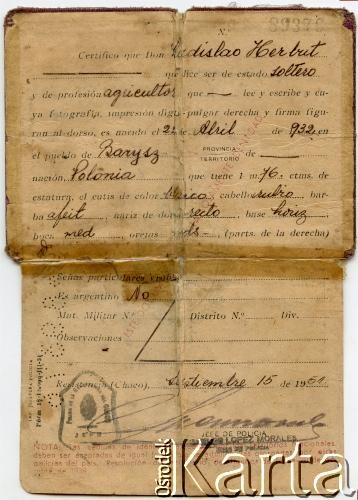 N.
Certifico que Don Ladislao Herbut
que dice ser de estado soltero
y de profesión agricultor que — lee y escribe y cu-
ya fotografía, impresión dígito-pulgar derecho y firma figu-
ran al dorso, es nacido el 2 de Abril de 932 en
el pueblo de Barysz PROVINCIA TERRITORIO de —
nación Polónia que tiene 1 m. 76 ctms. de
estatura, el cutis de color blanco, cabello rubio bar-
ba afeit nariz de dorso recto, base horiz
boca med orejas (parts. de la derecha)
Señas particulares visibles
Es argentino No
Mat. Militar N.º Distrito N.º Div.
Observaciones
Resistencia (Chaco), Septiembre 15 de 195
JEFE DE POLICIA
LOPEZ MORALES
JEFE DE POLICIA
NOTA: Las cédulas de
deben ser
policías del país. Resolución
Ośrodek Karta